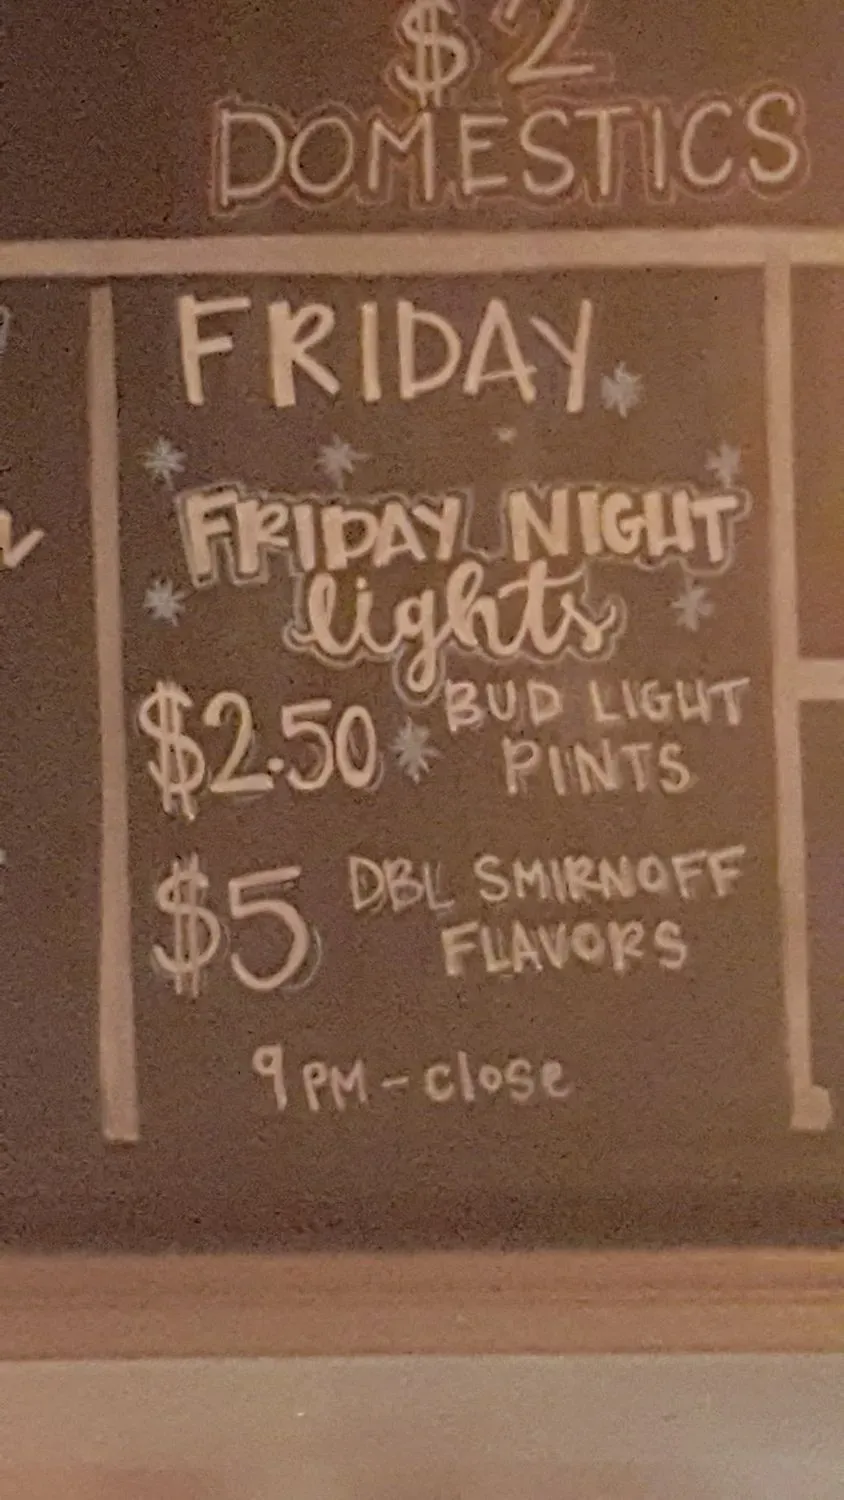 $2
DOMESTICS
FRIDAY
FRIDAY NIGHT
lights
$2.50 BUD LIGHT
PINTS
$5 DBL SMIRNOFF
FLAVORS
9PM - close